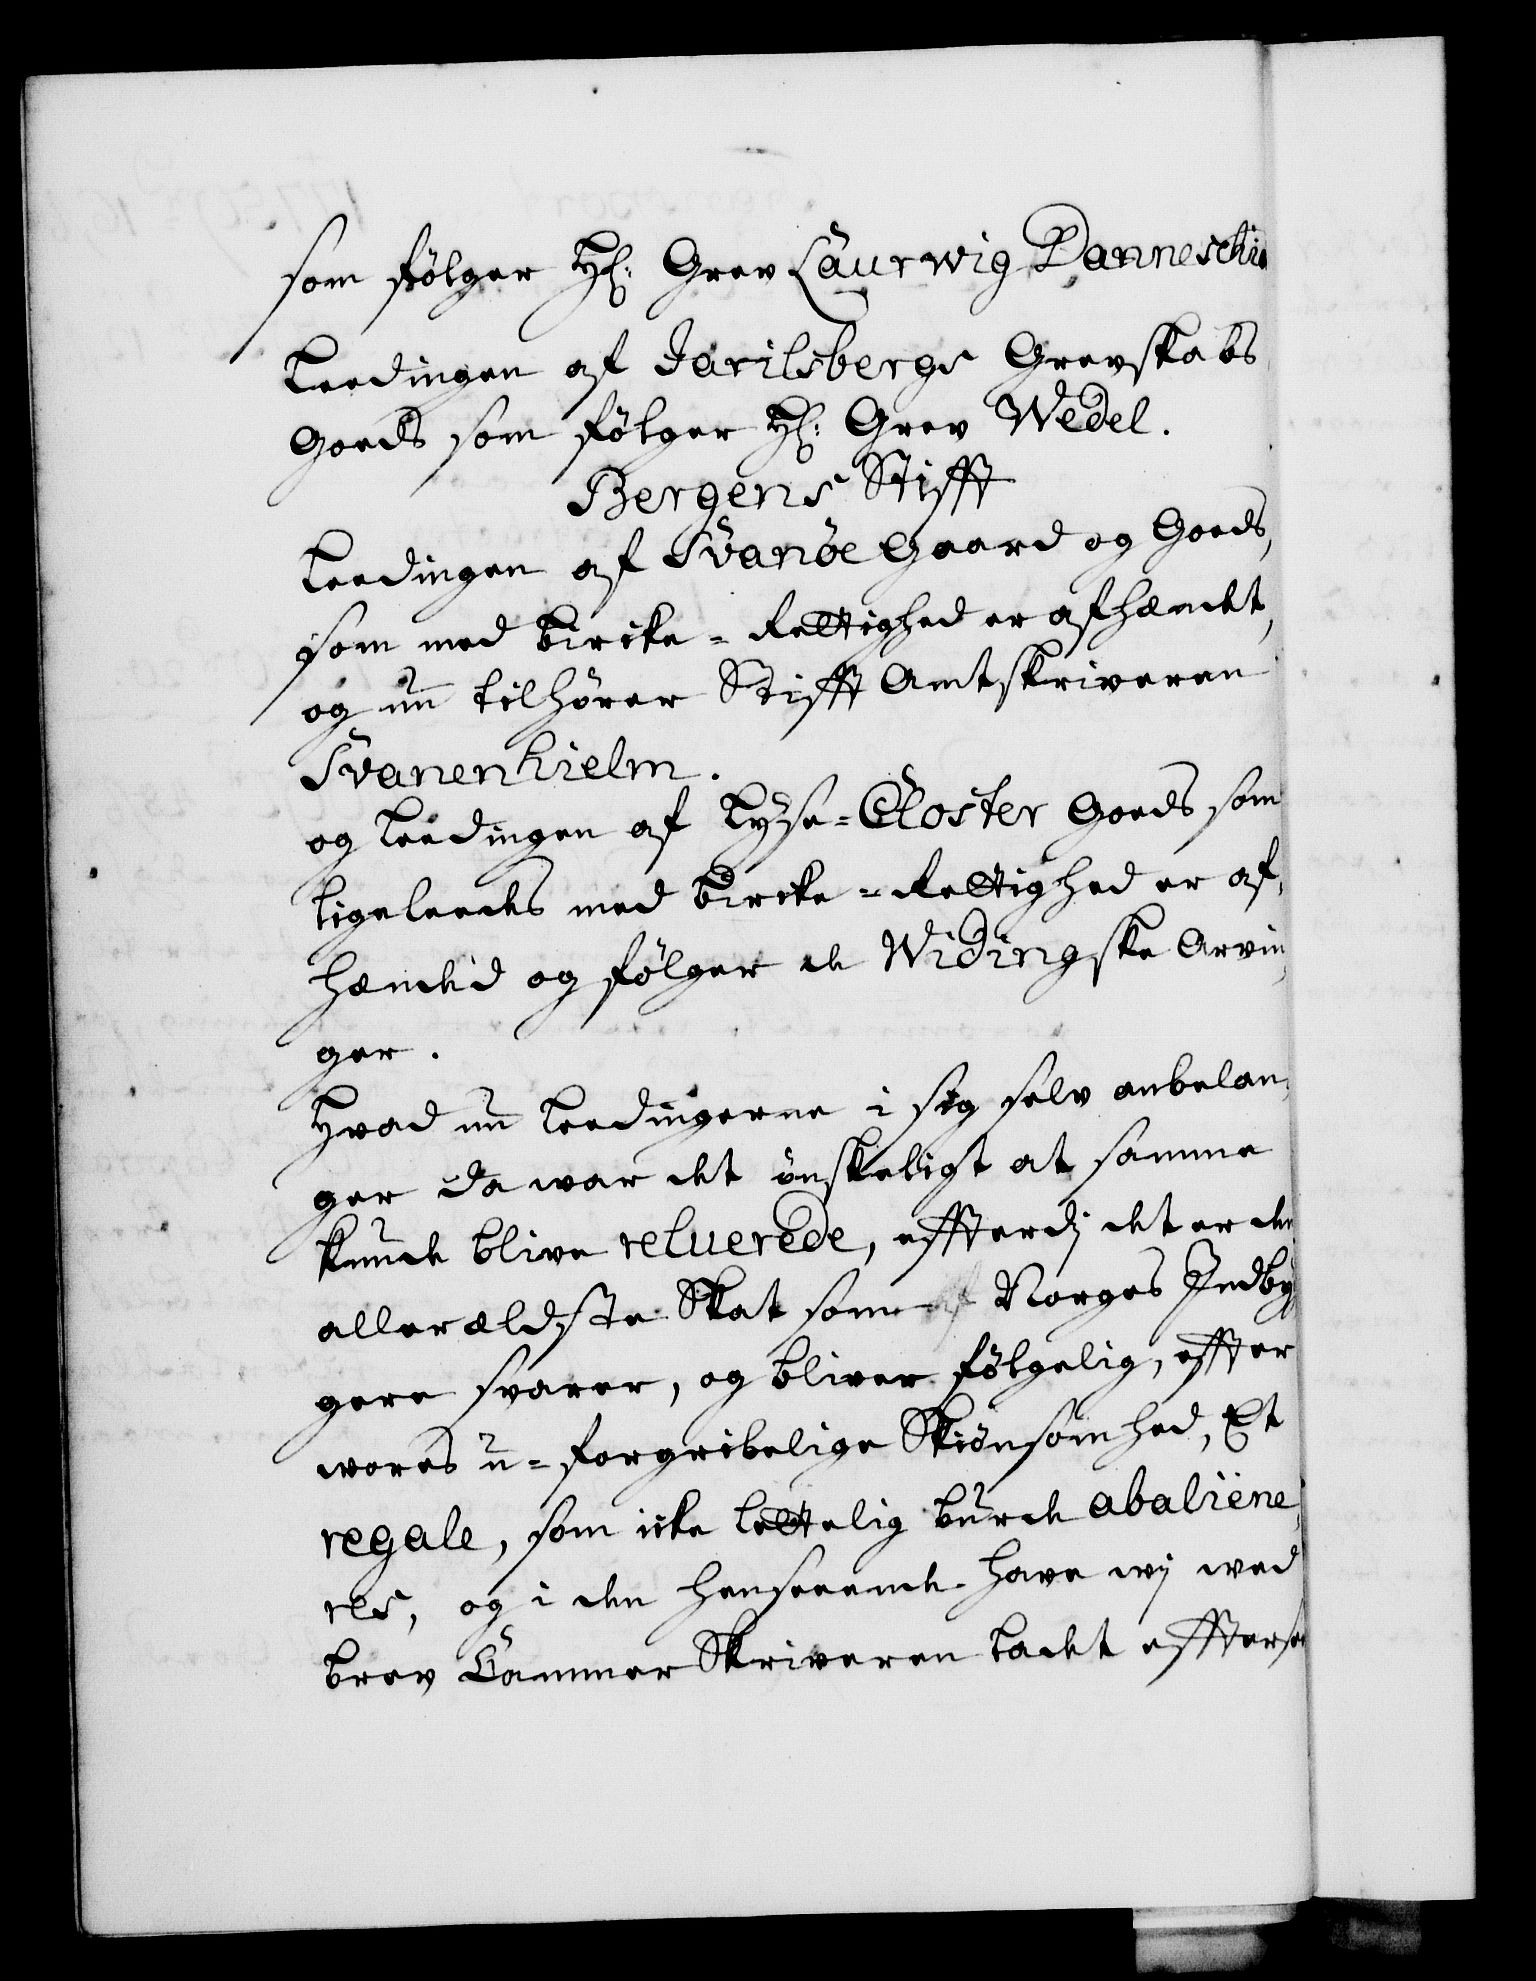 som følger H: Grev Laurwig Danneschi
Leedingen af Jarilsbergs Grevskabs
Goeds som følger H: Grev Wedel.
Bergens Stifft
Leedingen af Svanøe Gaard og Goeds,
som med Bircke-Rettighed er afhændet,
og nu tilhører Stifft Amtskriveren
Svanenhielm.
og Leedingen af Lyse-Closter Goeds som
ligeleedes med Bircke-Rettighed er af,
hændet og følger de Widingske Arvin,
ger.
Hvad nu Leedingerne i sig selv anbelan,
ger da war det ønskeligt at samme
kunde blive reluerede, effterdj det er den
allerældste Skat som af Norges Indby,
gere svarer, og bliver følgelig, effter
wores u-forgribelige Skiønsomhed, Et
regale, som icke lettelig burde abaliene,
res, og i den henseende have wj med
brev Cammer Skriveren ladet effterse